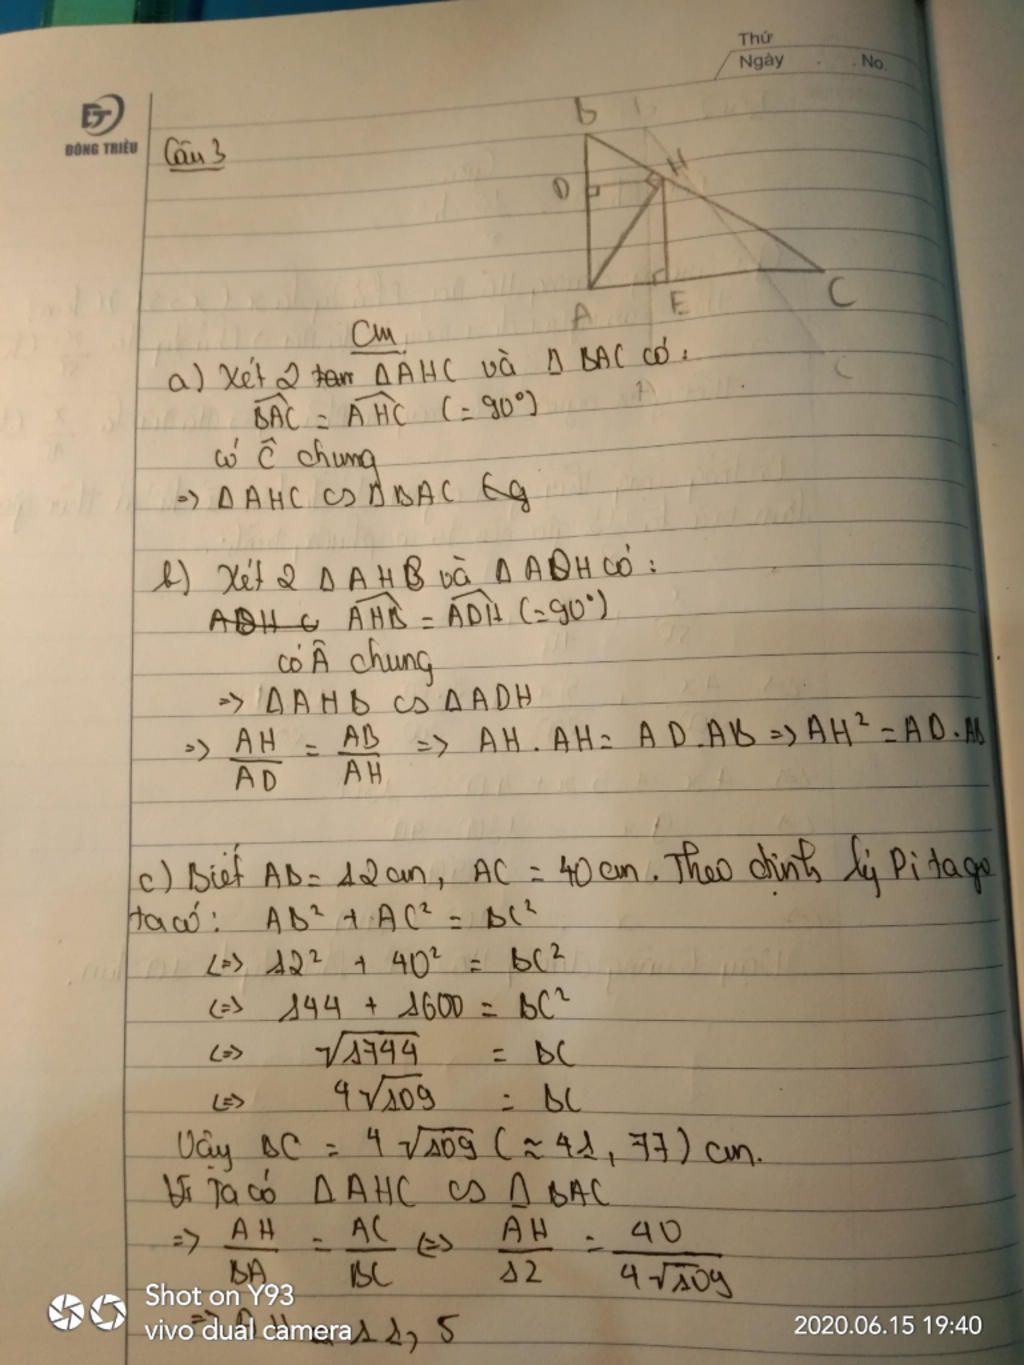 Thứ
Ngày . . No.
ĐT
ĐÔNG TRIỀU
Câu 3
B
D
H
A
E
C
Cm
a) Xét 2 ΔAHC và Δ BAC có:
BAC = AHC (= 90°)
có Ĉ chung
=> ΔAHC ∽ ΔBAC
b) Xét 2 ΔAHB và ΔADH có:
AHB = ADH (=90°)
có Â chung
=> ΔAHB ∽ ΔADH
=> AH/AD = AB/AH => AH . AH = AD.AB => AH² = AD.AB
c) Biết AB = 12cm, AC = 40cm. Theo định lý Pitago
ta có: AB² + AC² = BC²
<=> 12² + 40² = BC²
<=> 144 + 1600 = BC²
<=> √1744 = BC
<=> 4√109 = BC
Vậy BC = 4√109 (≈ 41,77) cm.
Ta có ΔAHC ∽ ΔBAC
=> AH/BA = AC/BC <=> AH/12 = 40/4√109
=> AH = 11,5
Shot on Y93
vivo dual camera
2020.06.15 19:40